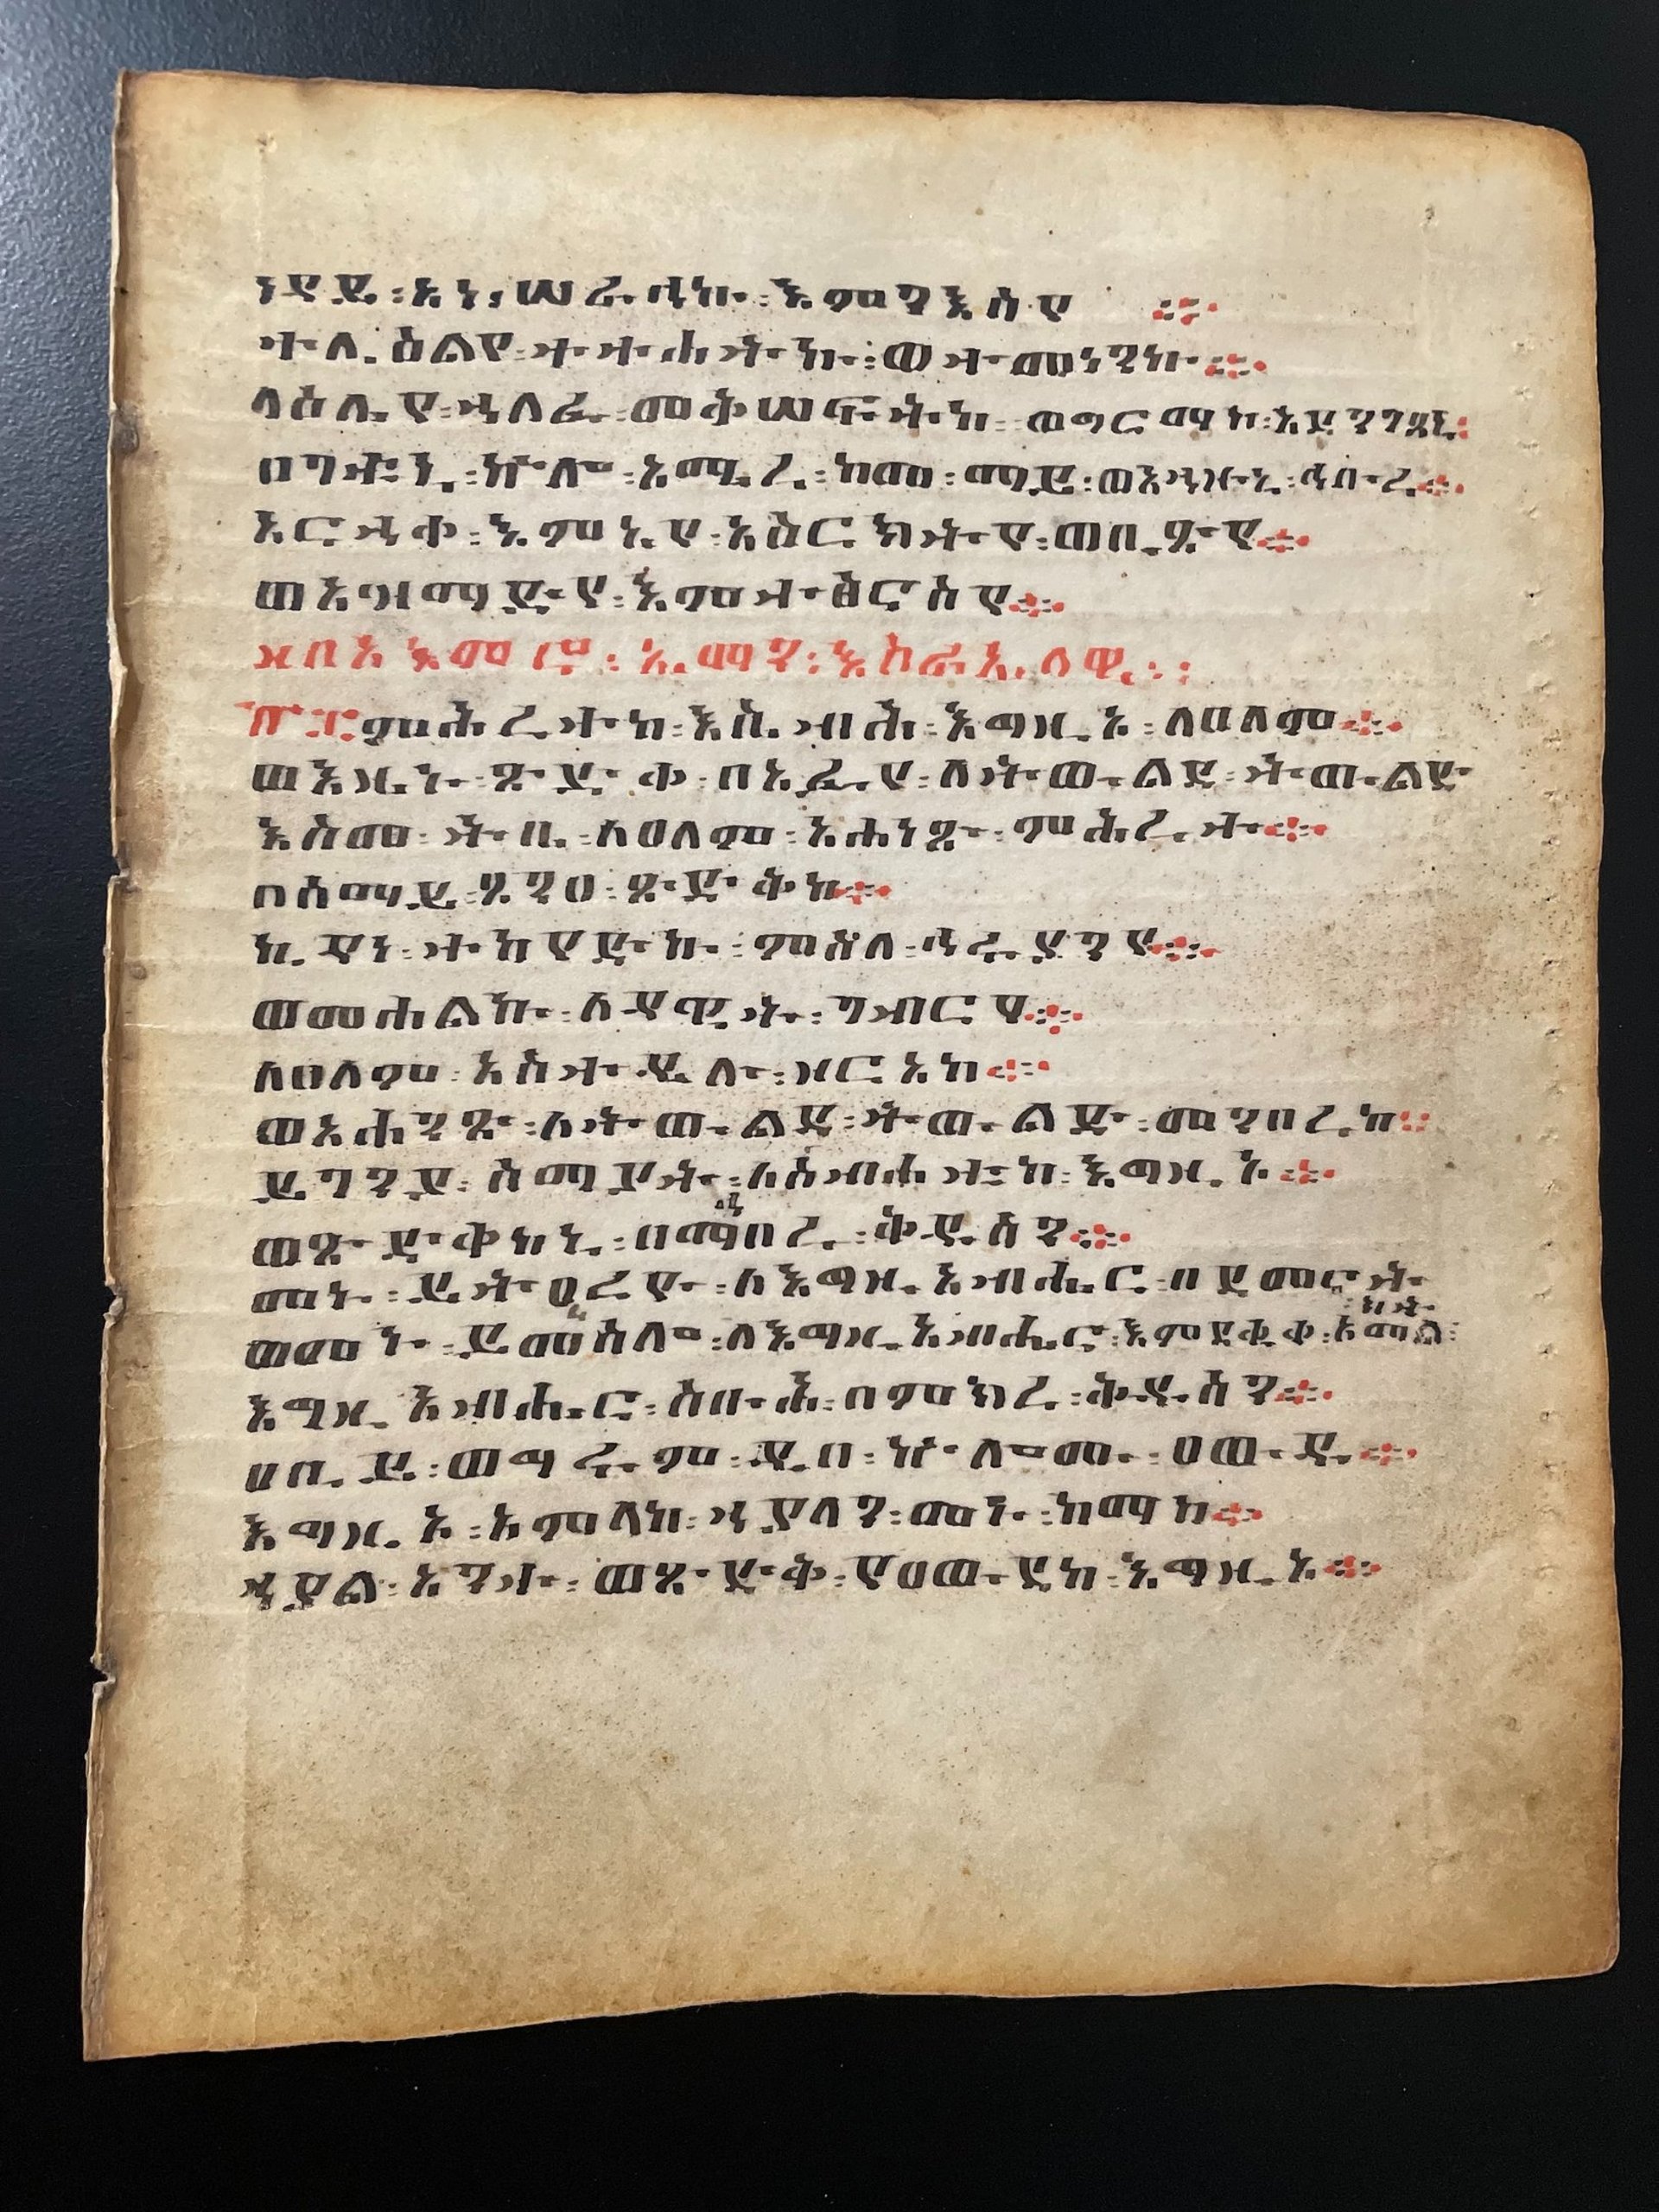 ነዳይ፡አነ፡ሠራሕኩ፡እምንእስየ ።
ተሊዕልየ፡ተትሕትኩ፡ወተመነንኩ፨
ላዕሌየ፡ኀለፈ፡መቅሠፍትከ፡ወግርማከ፡አደንገፀኒ፡
ዐገቱኒ፡ኵሎ፡አሚረ፡ከመ፡ማይ፡ወአኀዙኒ፡ኅቡረ፨
አርኀቀ፡እምኔየ፡አዕርክትየ፡ወቢጽየ፨
ወአዝማድየ፡እምተፅናስየ፨
ዘበአእምሮ፡ኤማን፡እስራኤላዊ፡፡
፹፰ምሕረተከ፡እሴብሕ፡እግዚኦ፡ለዓለም፨
ወእዜኑ፡ጽድቀ፡በአፉየ፡ለትውልደ፡ትውልድ
እስመ፡ትቤ፡ለዓለም፡አሐንጽ፡ምሕረተ፨
በሰማይ፡ጸንዐ፡ጽድቅከ፨
ኪዳነ፡ተካየድኩ፡ምስለ፡ኅሩያንየ፨
ወመሐልኩ፡ለዳዊት፡ገብርየ፨
ለዓለም፡አስተዴሉ፡ዘርአከ፨
ወአሐንጽ፡ለትውልደ፡ትውልድ፡መንበረከ፨
ይገንይ፡ሰማያት፡ለስብሐቲከ፡እግዚኦ፨
ወጽድቅከኒ፡በማኅበረ፡ቅዱሳን፨
መኑ፡ይትዔረዮ፡ለእግዚአብሔር፡በደመናት
ወመኑ፡ይመስሎ፡ለእግዚአብሔር፡እምደቂቀ፡አማልክት፡
እግዚአብሔር፡ስቡሕ፡በምክረ፡ቅዱሳን፨
ዐቢይ፡ወግሩም፡ዲበ፡ኵሎሙ፡ዐውዱ፨
እግዚኦ፡አምላከ፡ኀያላን፡መኑ፡ከማከ፨
ኀያል፡አንተ፡ወጽድቅ፡የዐውደከ፡እግዚኦ፨